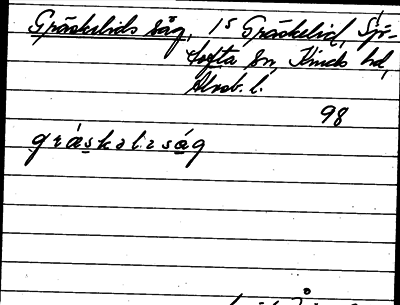 Gräskelids såg, 1s Gräskelid, Sjö-
tofta sn, Kinds hd,
Älvsb. l.
98
gräskəlizsåg